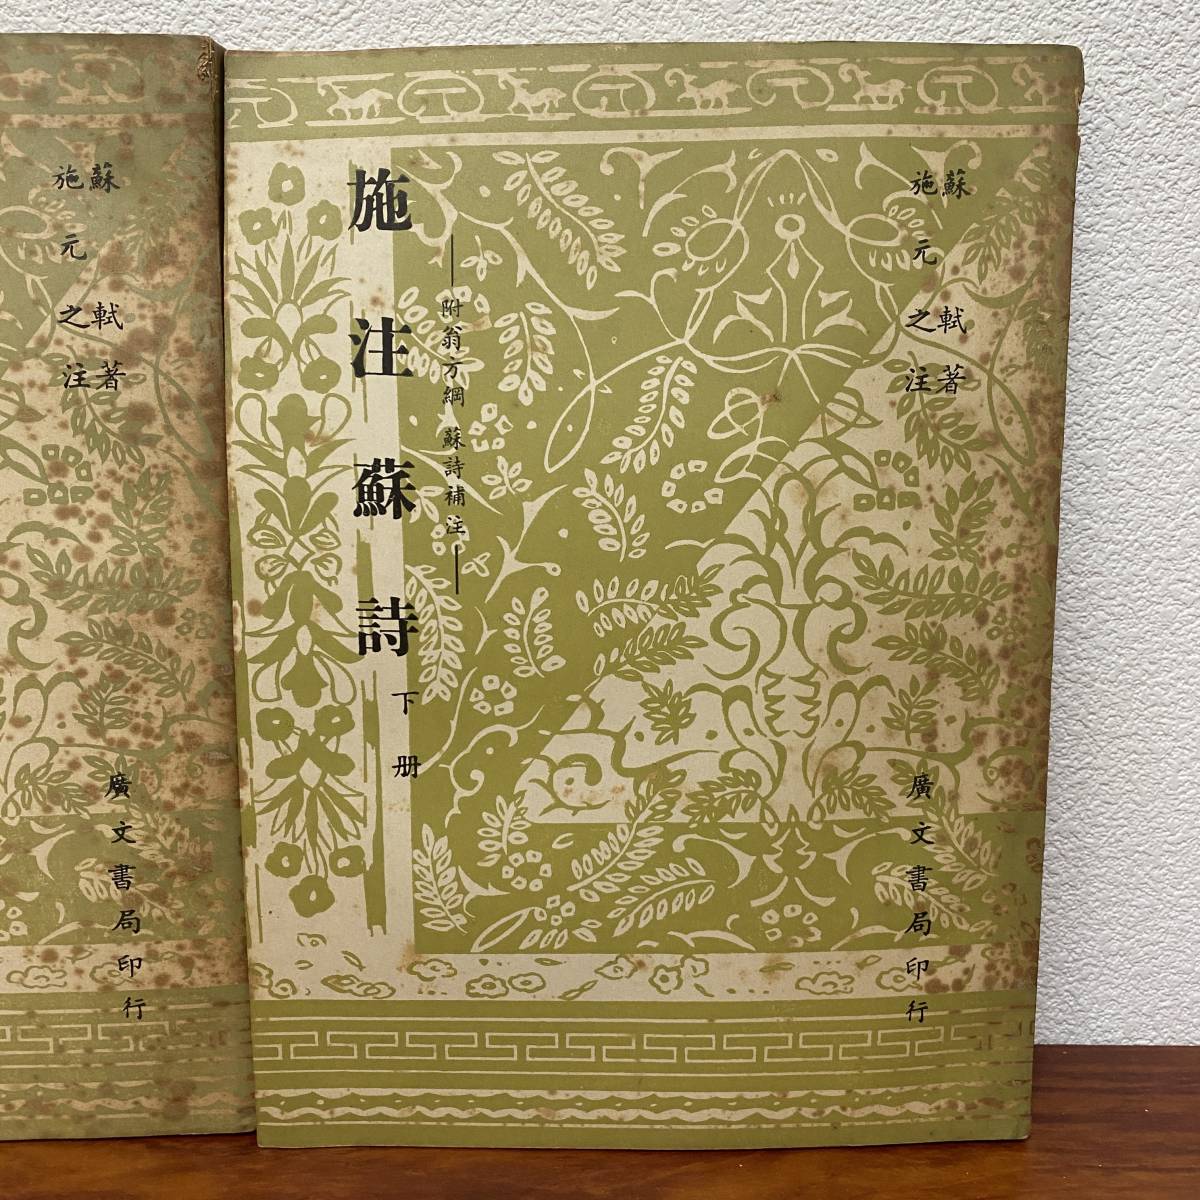 蘇軾著
施元之注
廣文書局印行
蘇軾著
施元之注
附翁方綱 蘇詩補注
施注蘇詩 下册
廣文書局印行